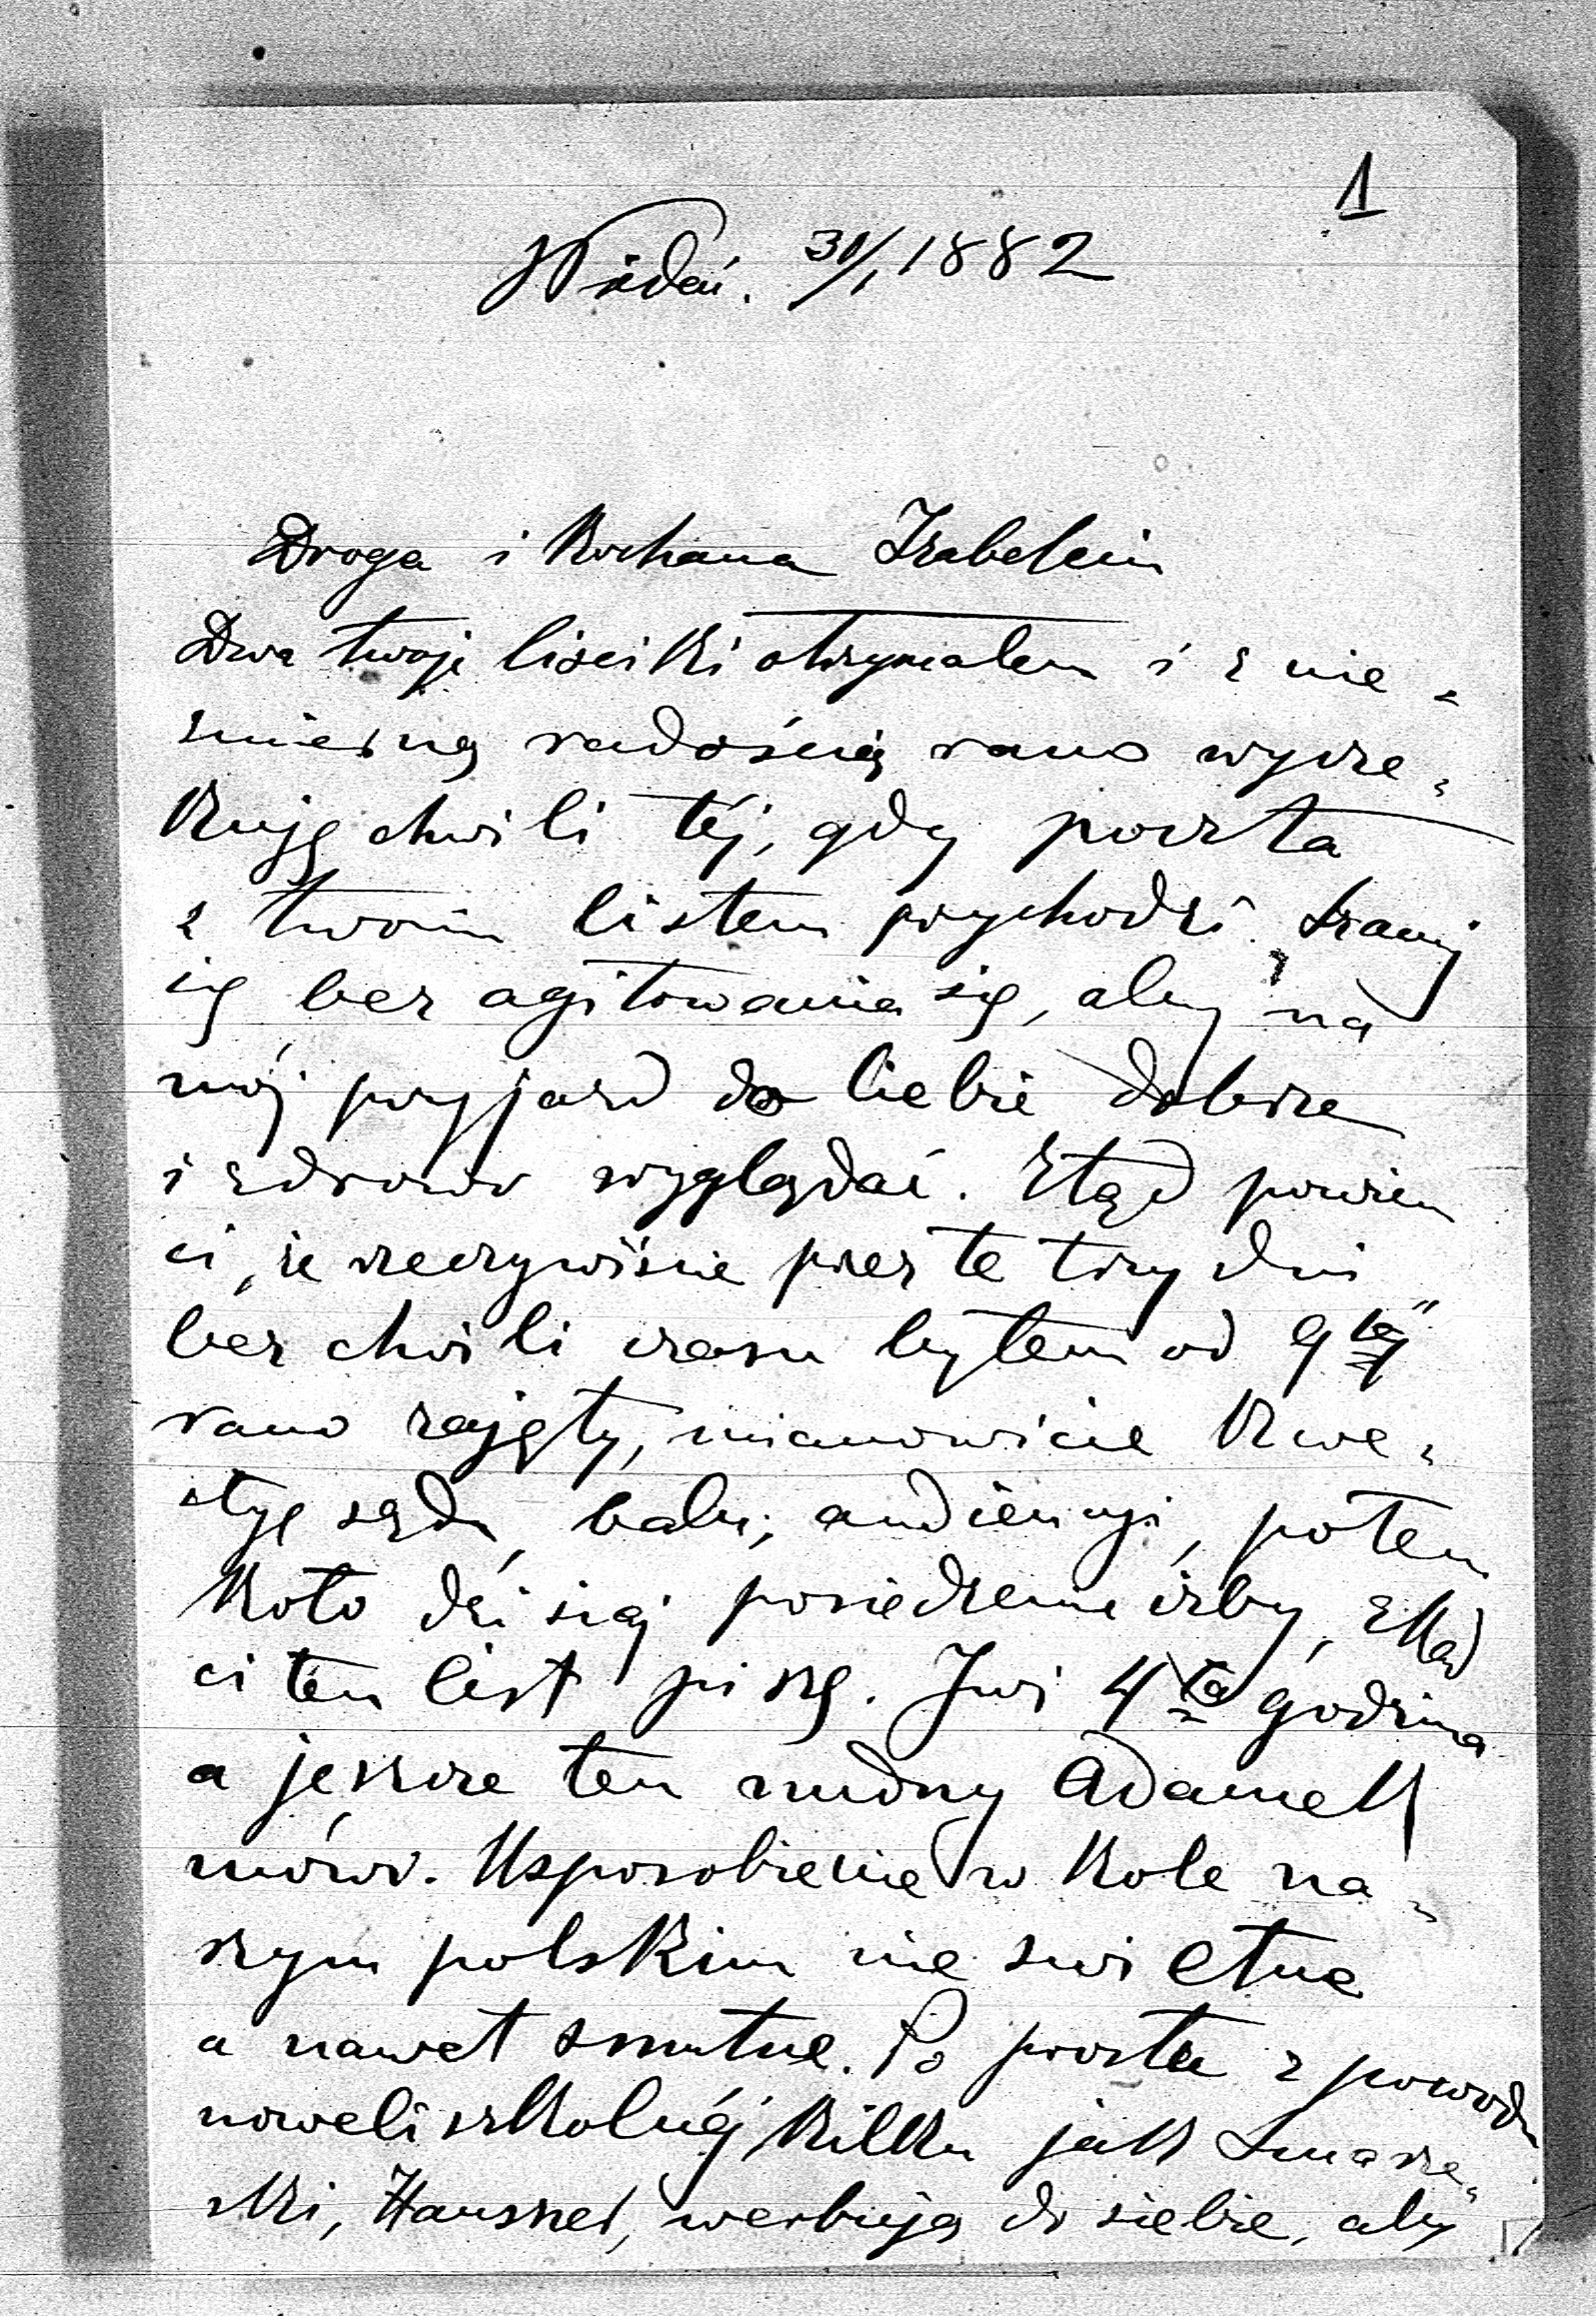 1
Wiedeń. 31/1 1882
Droga i Kochana Izabelciu
Dwa twoje liściki otrzymałem i z nie-
zmierną radością rano wycze-
kuję chwili téj, gdy poczta
z twoim listem przychodzi. Staraj
się bez agitowania się, aby na
mój przyjazd do Ciebie dobrze
i zdrowo wyglądać. Ztąd powiem
ci, że rzeczywiście przez te trzy dni
bez chwili czasu byłem od 9téj
rano zajęty, mianowicie kwe-
styę sądu, balu, audiencyi, potem
Koło dzisiaj posiedzenie izby, zkąd
ci ten list piszę. Już 4ta godzina
a jeszcze ten nudny Adamek
mówi. Usposobienie w Kole na-
szym polskim nie świetne
a nawet smutne. Po prostu z powodu
noweli szkolnéj kilku jak
Hausner, werbują do siebie, aby